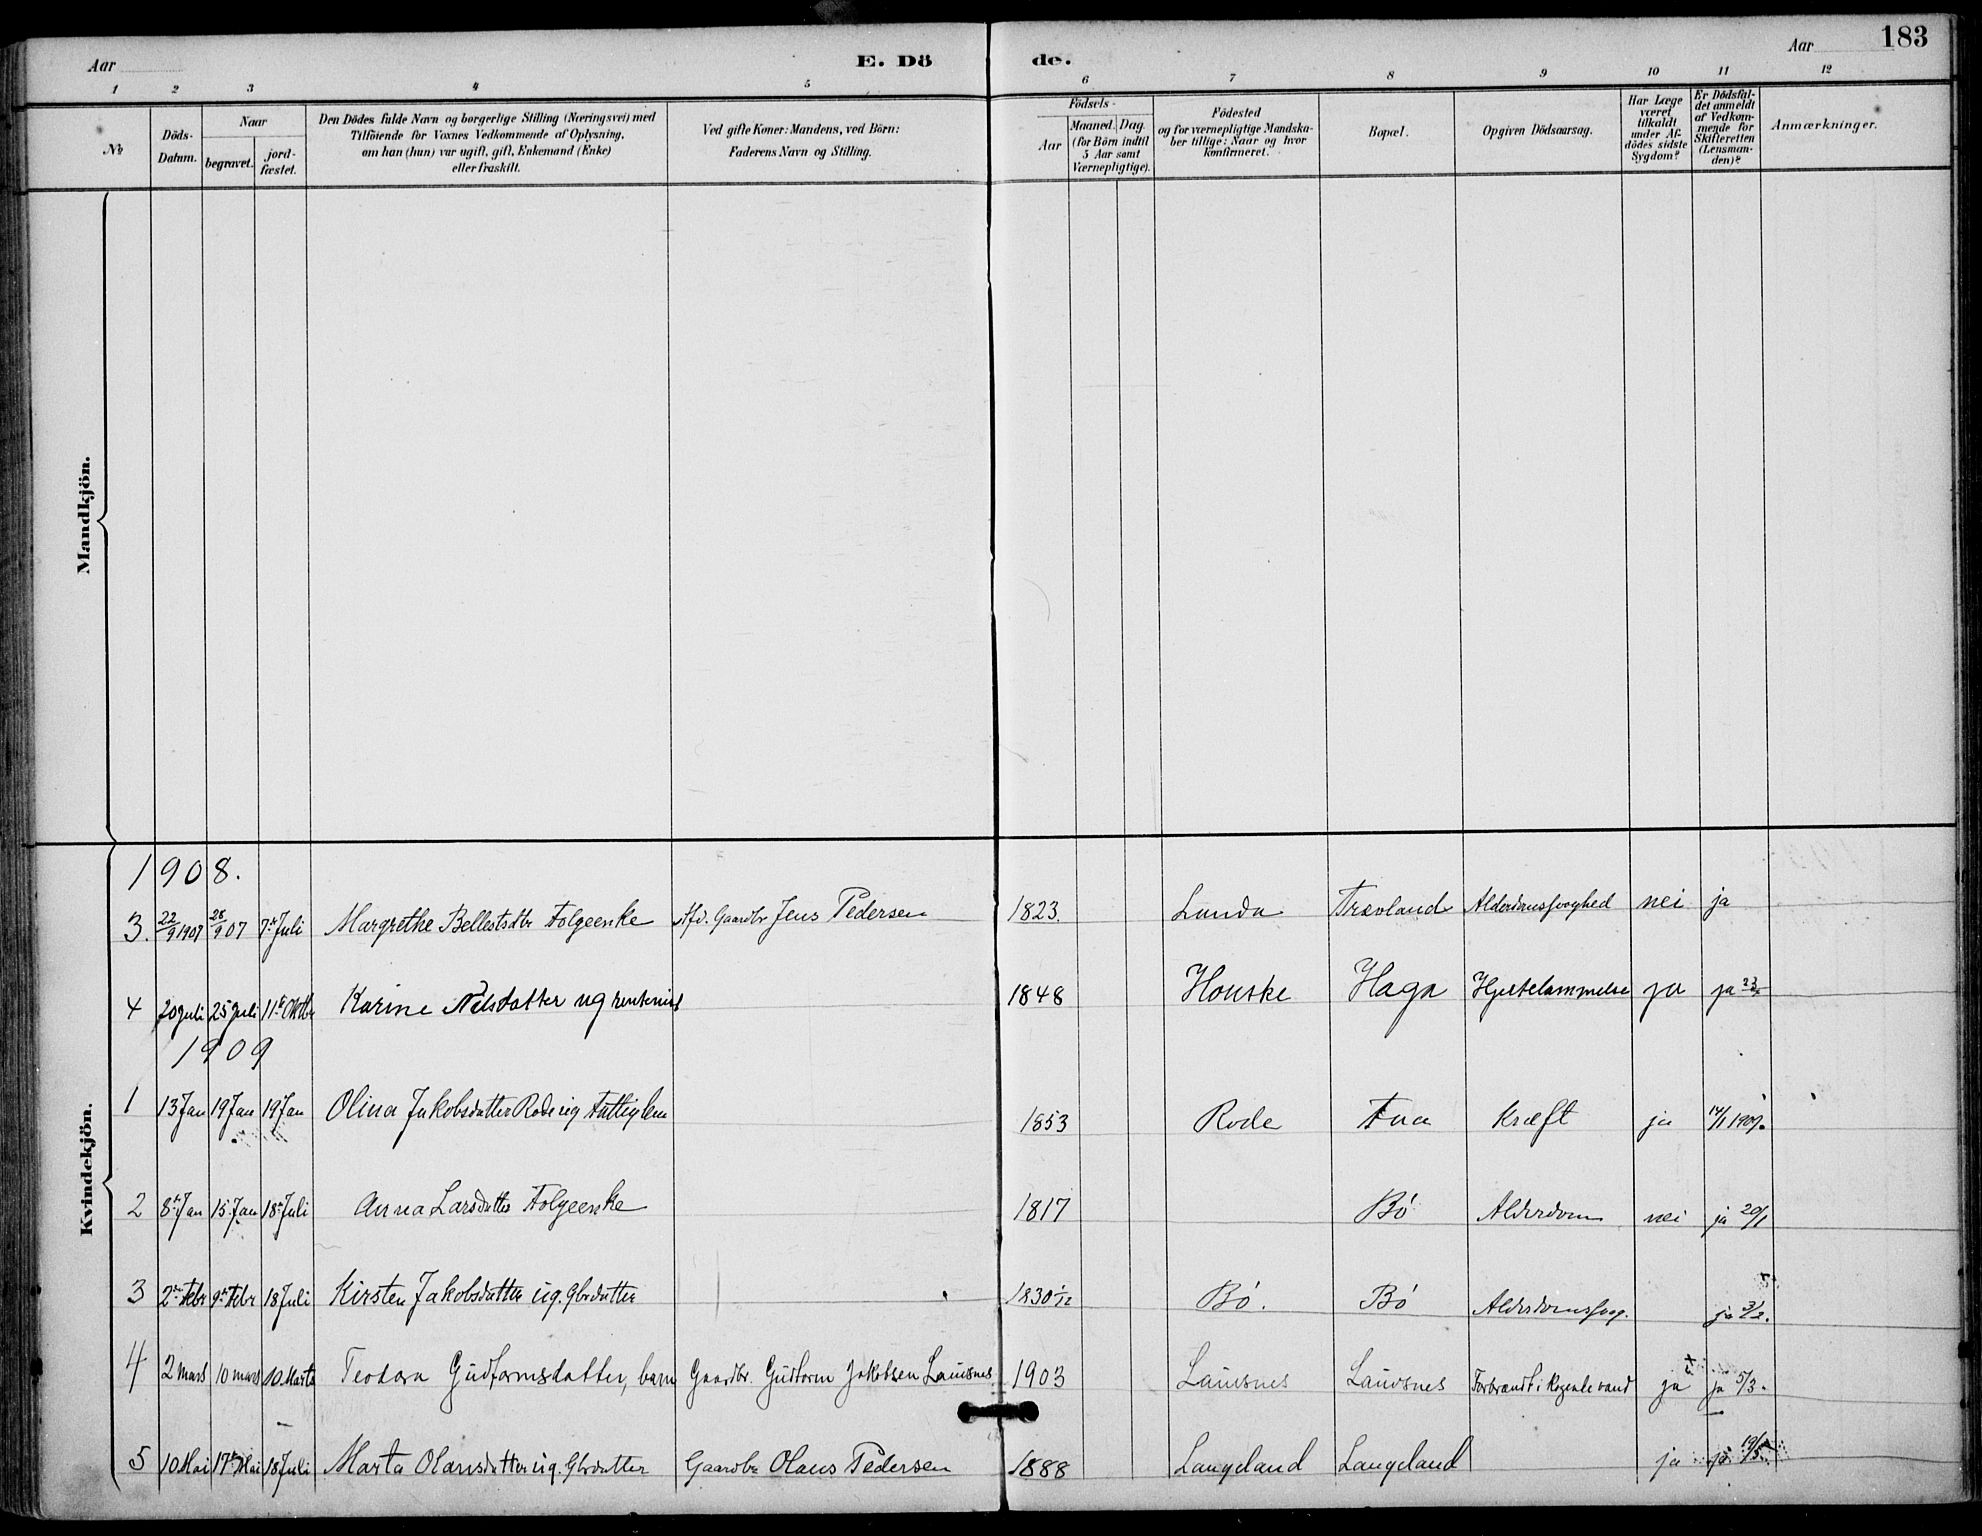 183
Aar
E. Dö
de.
Aar
1 2 3 4 5 6 7 8 9 10 11 12
No
Döds-Datum.
Naar
begravet.
jord-fæstet.
Den Dödes fulde Navn og borgerlige Stilling (Næringsvei) med
Tilföiende for Voxnes Vedkommende af Oplysning,
om han (hun) var ugift, gift, Enkemand (Enke)
eller fraskilt.
Ved gifte Koner: Mandens, ved Börn:
Faderens Navn og Stilling.
Födsels-
Aar
Maaned. Dag.
(for Börn indtil
5 Aar samt
Værnepligtige).
Födested
og for værnepligtige Mandska-
ber tillige: Naar og hvor
konfirmeret.
Bopæl.
Opgiven Dödsaarsag.
Har Læge
været
tilkaldt
under Af-
dödes sidste
Sygdom?
Er Dödsfal-
det anmeldt
af Vedkom-
mende for
Skifteretten
(Lensman-
den)?
Anmærkninger.
Mandkjön.
Kvindekjön.
1908.
3. 22/9 1907 28/9 07 7de Juli Margrethe Bellestsdtr Folgeenke Afd. Gaardbr Jens Pedersen 1823. Lunda Trævland Alderdomssvaghed nei ja
4 20 juli 25 juli 11te Oktbr Karine Nilsdatter ug rentenist 1848 Houske Haga Hjertelammelse ja ja
1909
1 13 Jan 19 Jan 19 Jan Olina Jakobsdatter Rode ug Fattiglem 1853 Rode Kræft ja 14/1 1909.
2 8de Jan 15. Jan 18de Juli Anna Larsdatter Folgeenke 1817 Bö Alderdom nei ja 20/1
3 2den Febr 9de Febr 18 Juli Kirsten Jakobsdatter ug. Gbrdatter 1830 1/12 Bö. Bö Alderdomssvag. ja 3/2.
4 2 mars 10 mars 10. Marts Teodora Gudtormsdatter, barn Gaardbr. Gudtorm Jakobsen Lauvsnes 1903 Lauvsnes Lauvsnes Forbrændt i kogende vand ja ja 5/3.
5 10 Mai 17de Mai 18 Juli Marta Olausdatter ug. Gbrdatter Gaardbr Olaus Pedersen 1888 Langeland Langeland ja ja 19/5